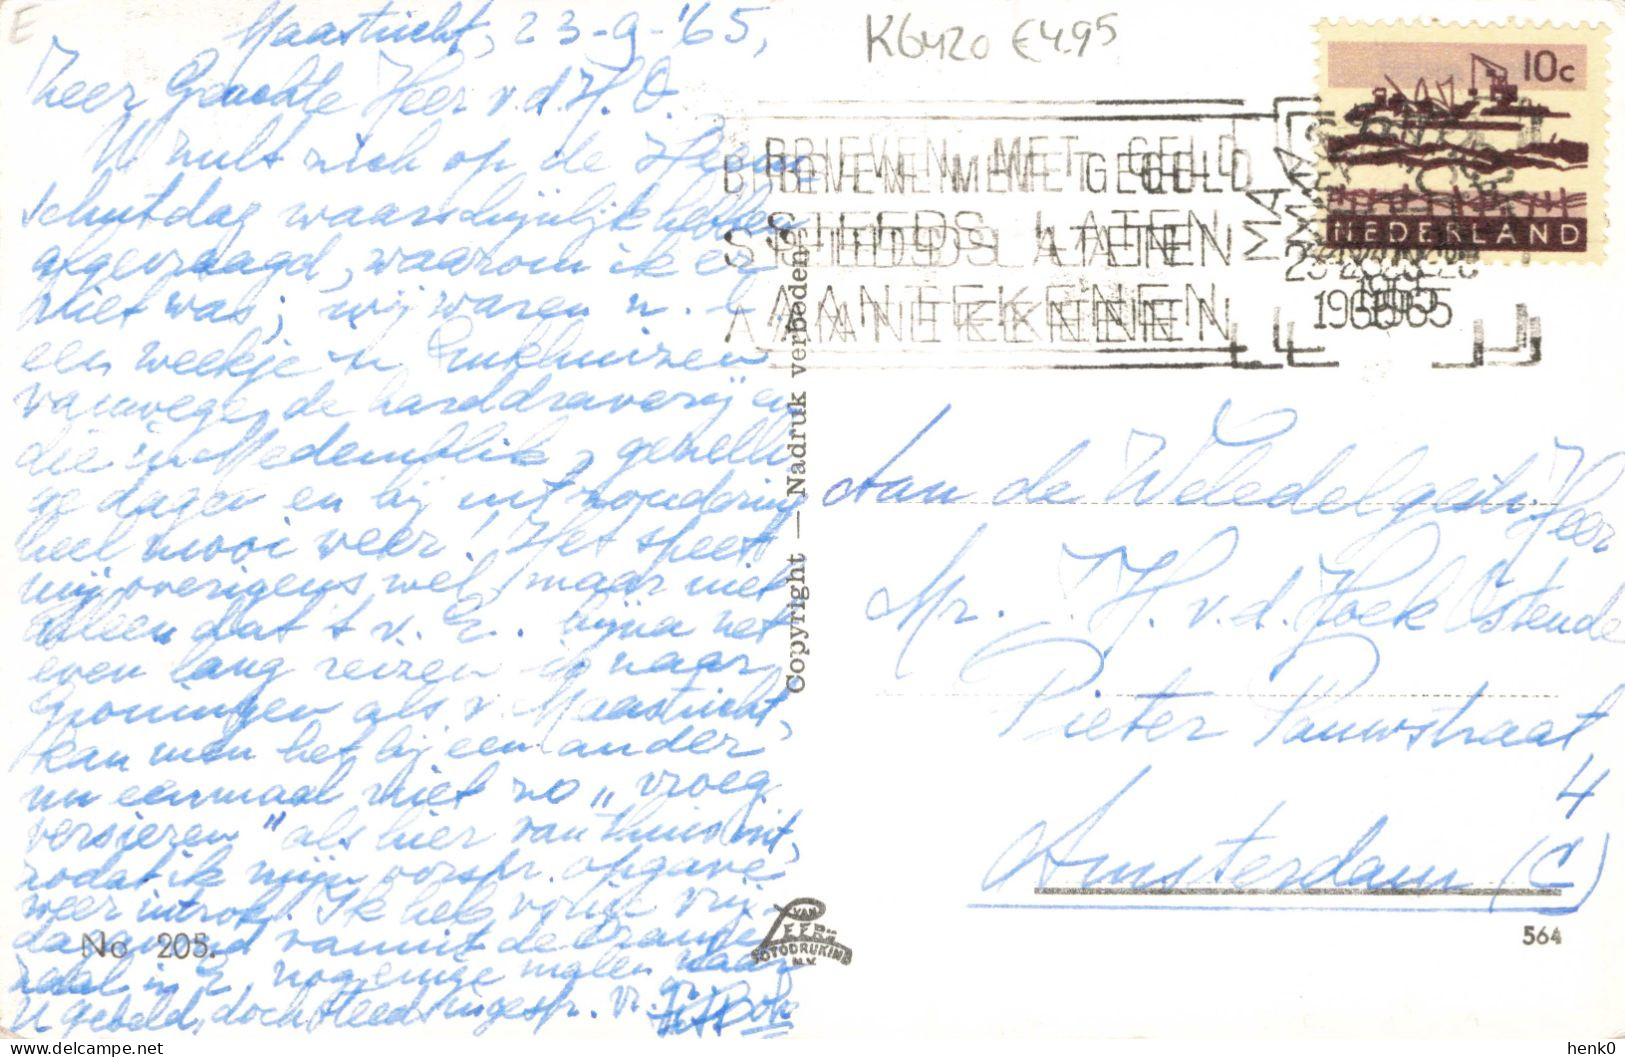 Maastricht, 23-9-'65,
K6420 €4.95
Zeer Geachte Heer v.d.H.O.
U zult zich op de Heeren
schutdag waarschijnlijk hebben
afgevraagd, waarom ik er
niet was; wij waren n.
een weekje in Enkhuizen
vanwege de harddraverij en
die in Medemblik, gezelli
ge dagen en bij uitzondering
heel mooi weer! Het speet
mij overigens wel, maar niet
alleen dat 't v. E. bijna net
even lang reizen is naar
Groningen als v. Maastricht,
kan men het bij een ander
nu eenmaal niet zo „vroeg
versieren" als hier van thuis uit,
zodat ik mijn oorspr. opgave
weer introk. Ik heb vorige vrij-
dagavond vanuit de Oranje
zaal in E. nog enige malen naar
U gebeld, doch steeds ingespr. Vr. gr.
BRIEVEN MET GELD
STEEDS LATEN
AANTEKENEN
MAASTRICHT
1965
10c
NEDERLAND
Aan de Weledelgestr. Heer
Mr. H. v.d. Hoek Ostende
Pieter Pauwstraat
4
Amsterdam (C)
Copyright — Nadruk verboden
No 205.
VAN LEER'S
FOTODRUKIND.
N.V.
564
henk0